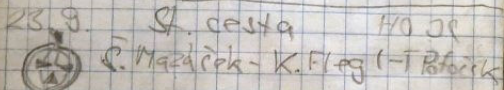 23.9. St. cesta HO JK
Š. Mazáček - K. Fleg (-T Potoček